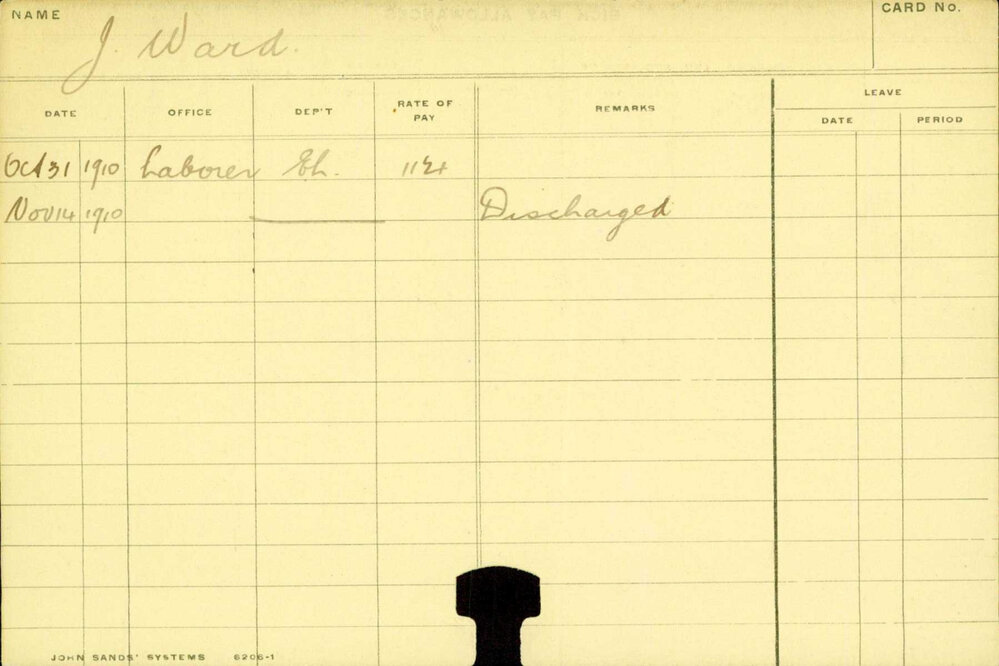 NAME J. Ward. CARD No.
LEAVE
DATE OFFICE DEP'T RATE OF PAY REMARKS DATE PERIOD
Oct 31 1910 Laborer Eh.
Nov 14 1910 Discharged
JOHN SANDS' SYSTEMS 6206-1